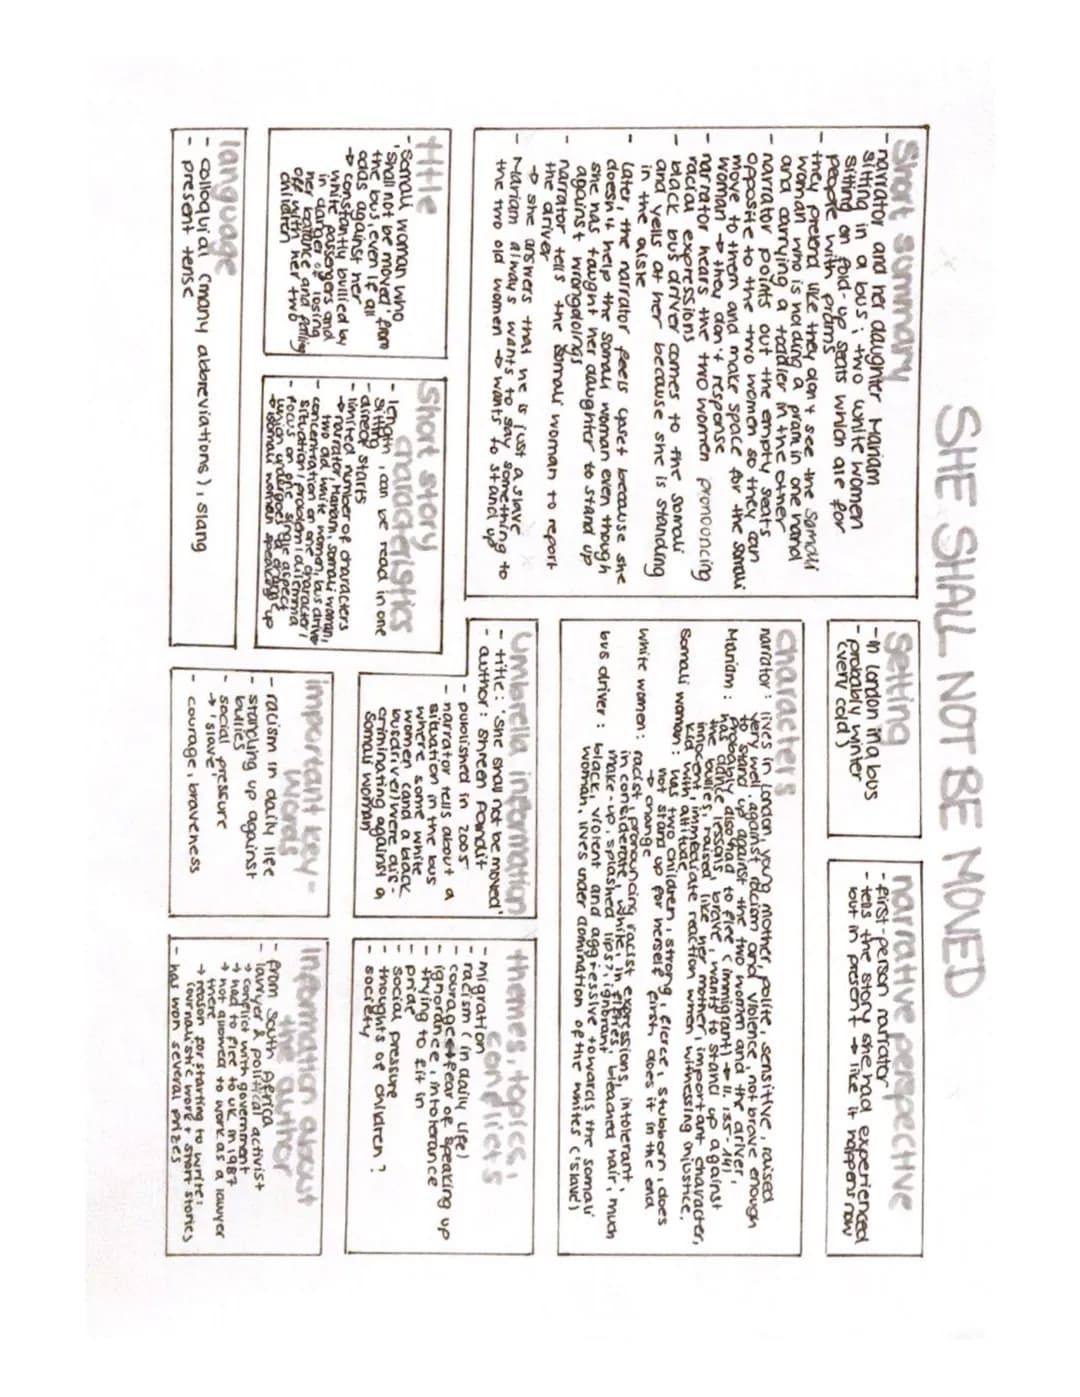 SHE SHALL NOT BE MOVED
Short summary
- narrator and her daughter Mariam
sitting in a bus; two white women
sitting on fold-up seats which are for
people with prams
- they pretend like they don't see the Somali
woman who is holding a pram in one hand
and carrying a toddler in the other
- narrator points out the empty seats
opposite to the two women so they can
move to them and make space for the Somali
woman → they don't response
- narrator hears the two women pronouncing
racial expressions
- black bus driver comes to the Somali
and yells at her because she is standing
in the aisle
- later, the narrator feels upset because she
doesn't help the Somali woman even though
she has taught her daughter to stand up
against wrongdoings
- narrator tells the Somali woman to report
the driver
→ she answers that he is just a slave
- Mariam always wants to say something to
the two old women → wants to stand up
Setting
- in London in a bus
- probably winter
(very cold)
narrative perspective
- first-person narrator
- tells the story she had experienced
but in present → like it happens now
characters
narrator: lives in London, young mother, polite, sensitive, raised
very well, against racism and violence, not brave enough
to stand up against the two women and the driver,
probably also had to flee (immigrant) → ll. 135-141
Mariam: has dance lessons, brave, wants to stand up against
the bullies, raised like her mother, important character,
innocent, immediate reaction when witnessing injustice,
kid with attitude
Somali woman: has two children, strong, fierce, stubborn, does
not stand up for herself first, does it in the end
→ change
white women: racist, pronouncing racist expressions, intolerant,
inconsiderate, white, in fifties, bleached hair, much
make-up, splashed lips?, ignorant
bus driver: black, violent and aggressive towards the Somali
woman, lives under domination of the whites ('slave')
title
- Somali woman who
'shall not be moved' from
the bus, even if all
odds against her
→ constantly bullied by
white passengers and
in danger of losing
her balance and falling
off with her two
children
Short story
characteristics
- length, can be read in one
sitting
- direct starts
- limited number of characters
→ narrator, Mariam, Somali woman,
two old white women, bus driver
- concentration on one character /
situation / problem / dilemma
- focus on one single aspect
which undergoes the change
→ Somali woman speaking up
language
- colloquial (many abbreviations), slang
- present tense
Umbrella information
- title: 'She shall not be moved'
- author: Shereen Pandit
- published in 2005
- narrator tells about a
situation in the bus
where some white
women (and a black
busdriver) were dis-
criminating against a
Somali woman
themes, topics,
conflicts
- migration
- racism (in daily life)
- courage ↔ fear of speaking up
- ignorance, intolerance
- trying to fit in
- pride
- social pressure
- thoughts of children?
- society
important key-
words
- racism in daily life
- standing up against
bullies
- social pressure
→ 'slave'
- courage, braveness
Information about
the author
- from South Africa
- lawyer & political activist
→ conflict with government
→ had to flee to UK in 1987
→ not allowed to work as a lawyer
there
→ reason for starting to write:
journalistic work + short stories
- has won several prizes